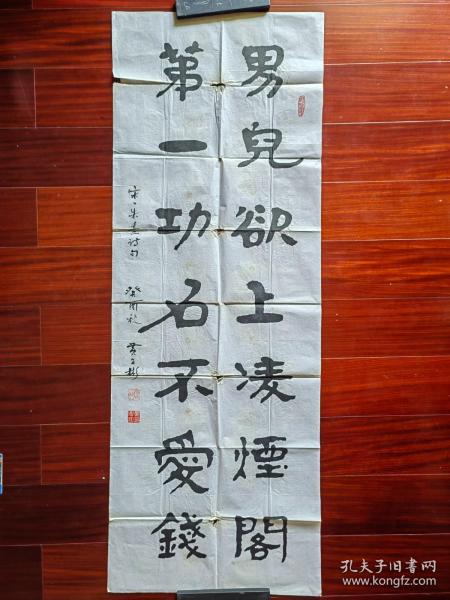 男兒欲上凌煙閣
第一功名不愛錢
宋·朱熹詩句
癸酉秋
孔夫子旧书网
www.kongfz.com